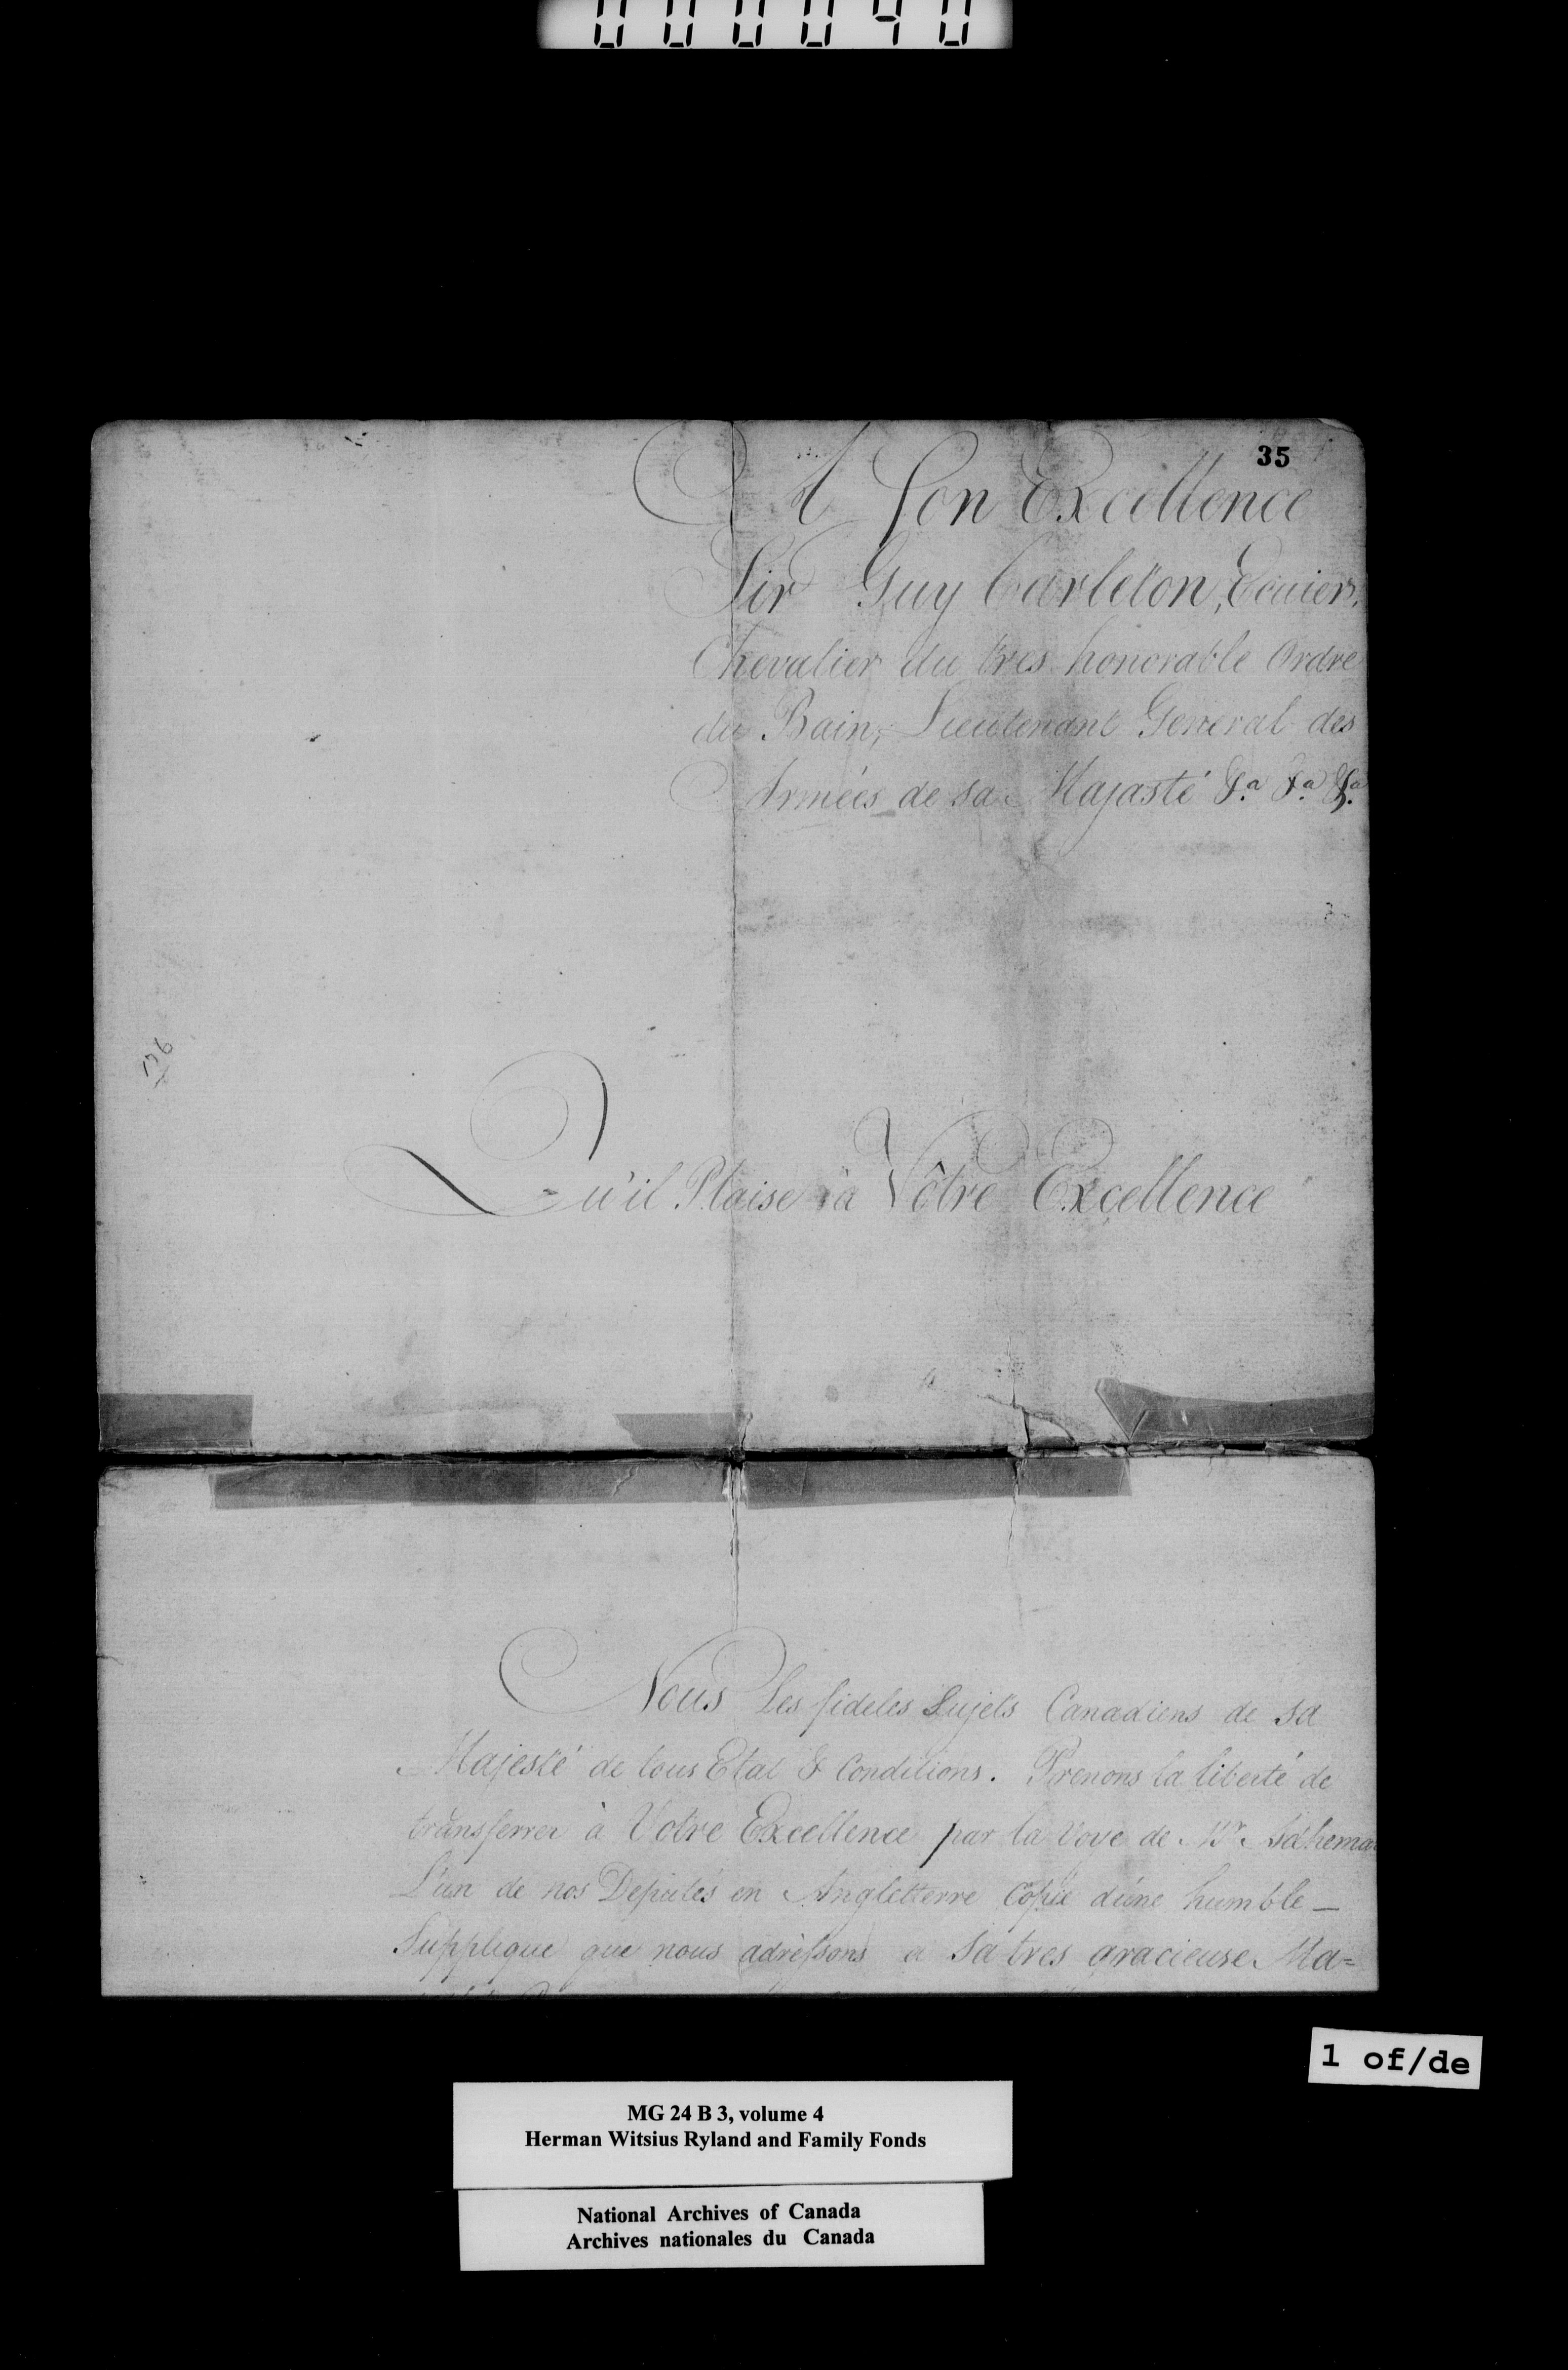 000040
35
A Son Excellence
Sir Guy Carleton, Ecuier,
Chevalier du tres honorable Ordre
du Bain, Lieutenant General des
Armées de sa Majasté &.a &.a &.a
Qu'il Plaise à Vôtre Excellence
Nous Les fideles Sujets Canadiens de sa
Majesté de tous Etat & Conditions. Prenons la liberté de
transferrer à Votre Excellence par la Voye de Mr. Adhemar
L'un de nos Deputés en Angletterre Copie d'une humble —
Supplique que nous adressons a sa tres gracieuse Ma=
1 of/de
MG 24 B 3, volume 4
Herman Witsius Ryland and Family Fonds
National Archives of Canada
Archives nationales du Canada